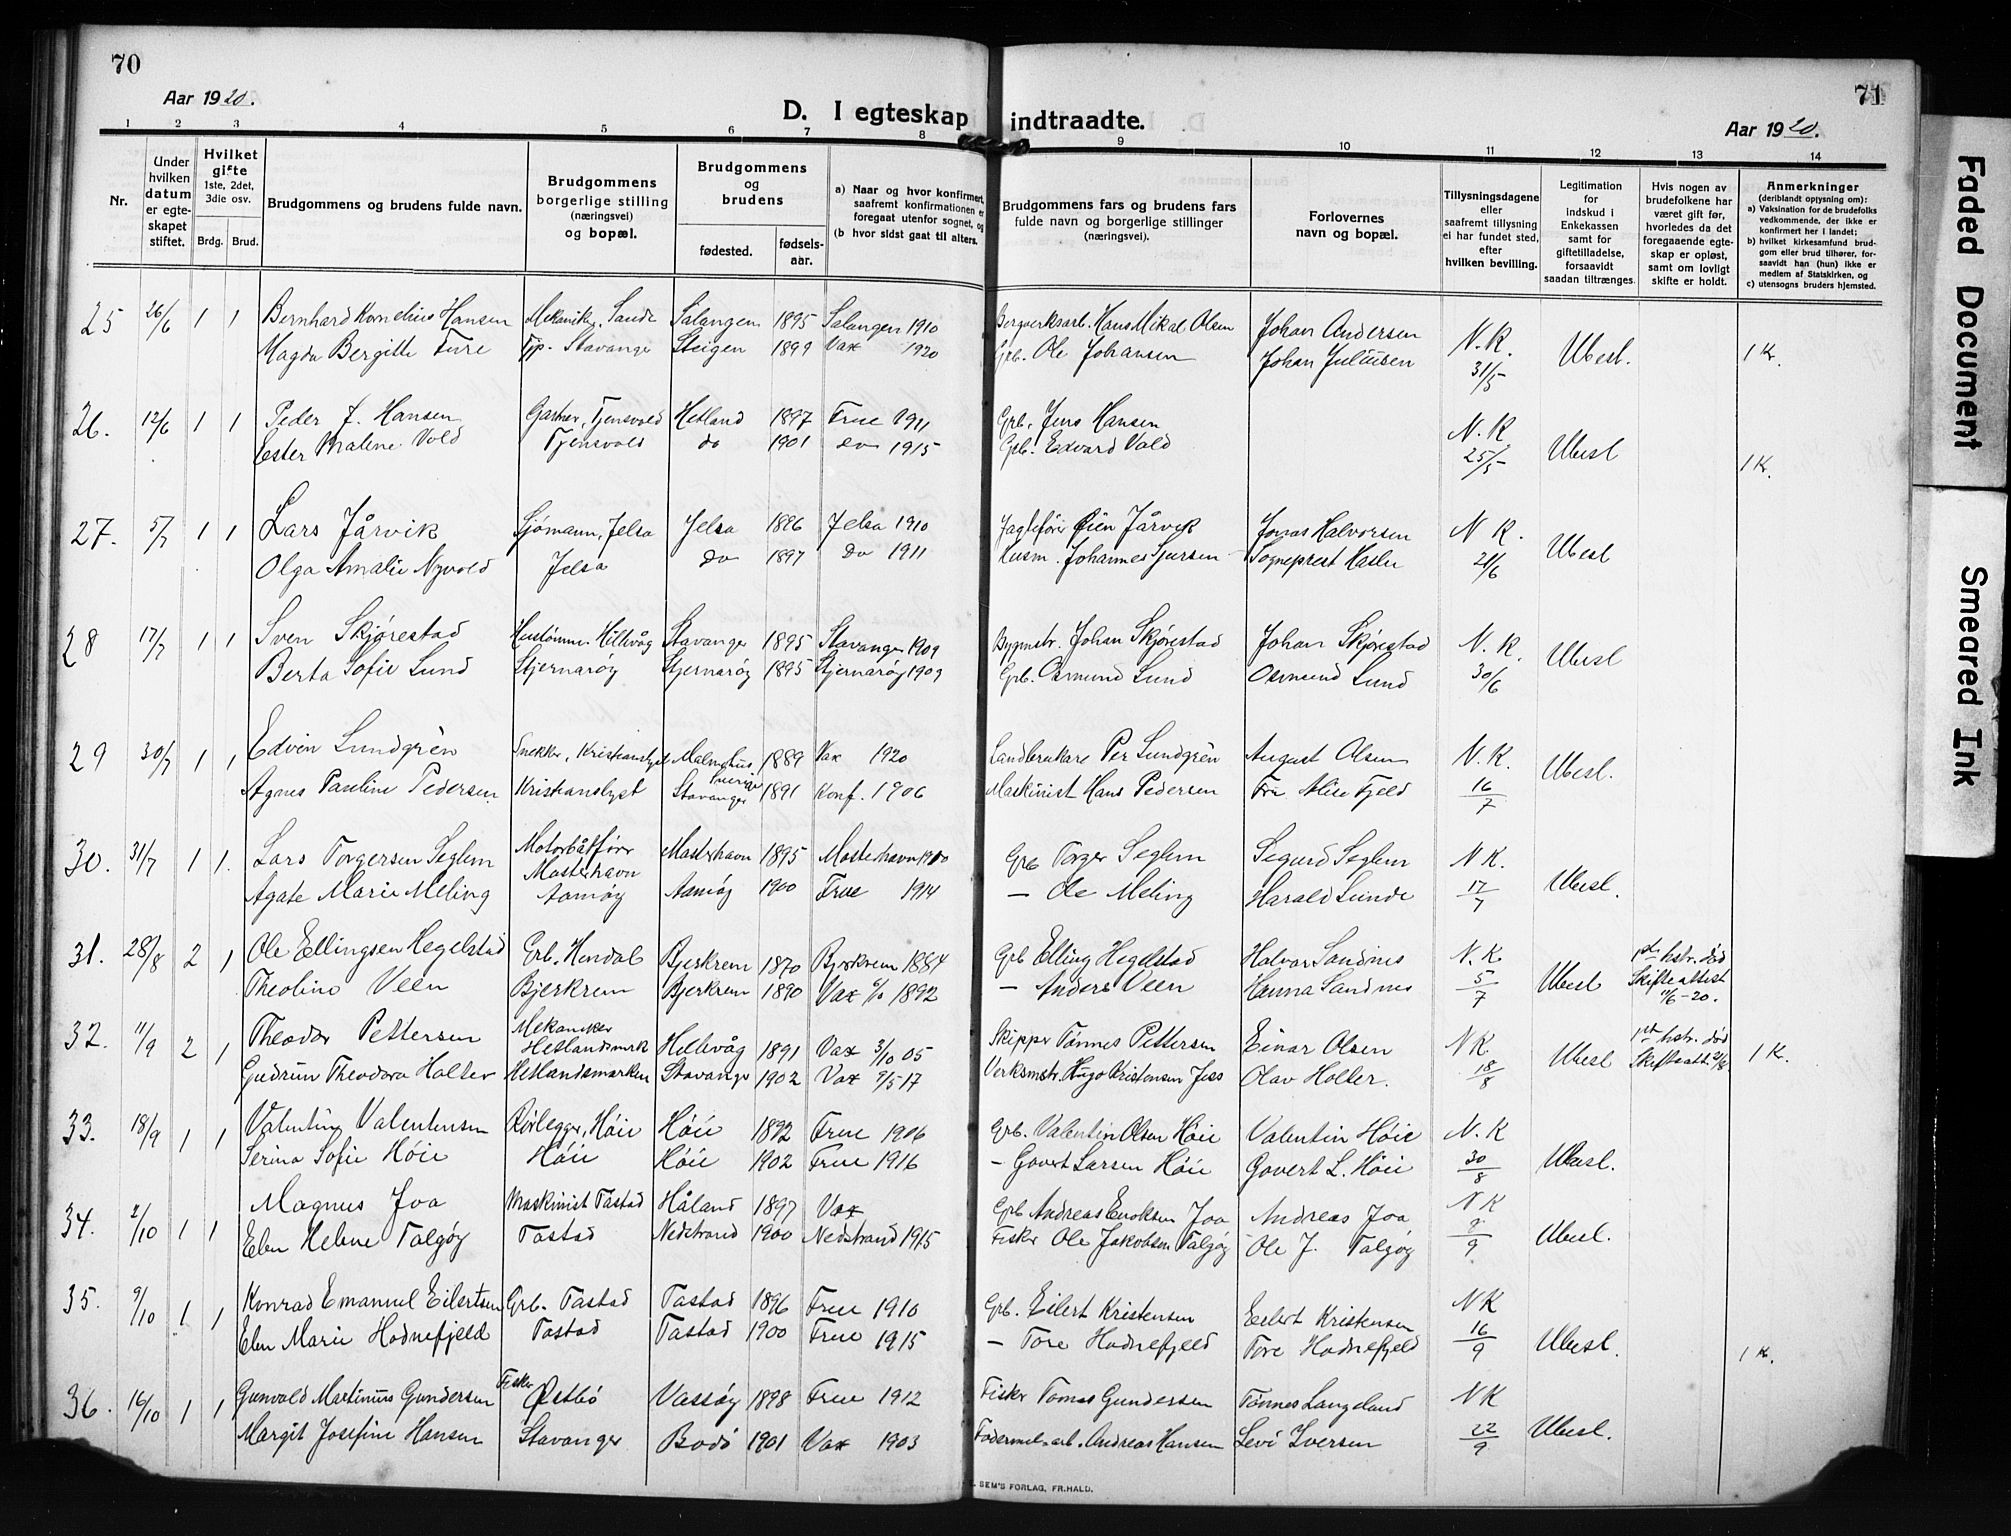 70
71
Aar 1920.
D. I egteskap indtraadte.
Aar 1920.
1 2 3 4 5 6 7 8 9 10 11 12 13 14
Nr.
Under hvilken datum er egteskapet stiftet.
Hvilket gifte 1ste, 2det, 3die osv.
Brdg. Brud.
Brudgommens og brudens fulde navn.
Brudgommens borgerlige stilling (næringsvei) og bopæl.
Brudgommens og brudens
fødested. fødselsaar.
a) Naar og hvor konfirmert, saafremt konfirmationen er foregaat utenfor sognet, og
(b hvor sidst gaat til alters.
Brudgommens fars og brudens fars fulde navn og borgerlige stillinger (næringsvei).
Forlovernes navn og bopæl.
Tillysningsdagene eller saafremt tillysning ei har fundet sted, efter hvilken bevilling.
Legitimation for indskud i Enkekassen samt for giftetilladelse, forsaavidt saadan tiltrænges.
Hvis nogen av brudefolkene har været gift før, hvorledes da det foregaaende egteskap er opløst, samt om lovligt skifte er holdt.
Anmerkninger (deriblandt opjysning om):
a) Vaksination for de brudefolks vedkommende, der ikke er konfirmert her i landet;
b) hvilket kirkesamfund brudgom eller brud tilhører, forsaavidt han (hun) ikke er medlem af Statskirken, og
c) utensogns bruders hjemsted.
25 26/6 1 1 Bernhard Kornelius Hansen Mekaniker, Sande Salangen 1895 Salangen 1910 Bergverksarb. Hans Mikal Olsen Johan Andersen N.K.
Magda Bergitte Ture Tjp. Stavanger Steigen 1899 Vax 1920 Grb. Ole Johansen Johan Juliusen 31/5 Ubesl. 1 Kr.
26. 12/6 1 1 Peder J. Hansen Gartner, Tjensvold Hetland 1897 Frue 1911 Grb. Jens Hansen N.K
Ester Malene Vold Tjensvold do 1901 do 1915 Grb. Edvard Vold 25/5 Ubesl 1 Kr.
27. 5/7 1 1 Lars Jårvik Sjømann, Jelsa Jelsa 1896 Jelsa 1910 Jårvik Jonas Halvorsen N K.
Olga Amalie Nyvold Jelsa do 1897 do 1911 Husm. Johannes Sjursen Sogneprest Hasle 21/6 Ubesl
28 17/7 1 1 Sven Skjørestad Hustømmer Hillevåg Stavanger 1895 Stavanger 1909 Bygmstr. Johan Skjørestad Johan Skjørestad N.K.
Berta Sofie Lund Stjernarøy Stjernarøy 1895 Stjernarøy 1909 Grb. Osmund Lund Osmund Lund 30/6 Ubesl
29 30/7 1 1 Edvin Lundgrén Snekker, Kristianslyst Malmøhus Sverige 1889 Vax 1920 Landbrukare Per Lundgrén August Olsen N.K.
Agnes Pauline Pedersen Kristianslyst Stavanger 1891 Konf. 1906 Maskinist Hans Pedersen Fru Alice Fjeld 16/7 Ubesl.
30. 31/7 1 1. Lars Torgersen Seglem Motorbåtfører Mosterhavn Mosterhavn 1895 Mosterhavn 1910 Grb Torger Seglem Sigurd Seglem N.K.
Agate Marie Meling Aamøy Aamøy 1900 Frue 1914 — Ole Meling Harald Lunde 17/7 Ubesl.
31. 28/8 2 1 Ole Ellingsen Hegelstad Grb. Hendal Bjerkrem 1870 Bjerkrem 1884 Grb Elling Hegelstad Halvar Sandnes N.K 1ste hstr. død
Theoline Veen Bjerkrem Bjerkrem 1890 Vax 1892 — Anders Veen Hanna Sandnes 5/7 Ubesl Skifteattest 11/6-20.
32. 11/9 2 1 Theodor Pettersen Mekaniker Hetlandsmark Hillevåg 1891 Vax 3/10 05 Skipper Tønnes Pettersen Einar Olsen NK 1ste hstr. død
Gudrun Theodora Holter Hetlandsmarken Stavanger 1902 Vax 9/5 17 Verksmstr. Hugo Kristensen Olav Holter. 18/8 Ubesl Skifteatt. 1 Kr.
33. 18/9 1 1 Valentin Valentinsen Rørlegger, Høie Høie 1892 Frue 1906 Grb. Valentin Olsen Høie Valentin Høie N.K
Serina Sofie Høie Høie Høie 1902 Frue 1916 — Govert Larsen Høie Govert L. Høie 30/8 Ubesl.
34. 2/10 1 1 Magnus Joa Maskinist Tastad Håland 1897 Vax Grb Andreas Enoksen Joa Andreas Joa NK
Elen Helene Talgøy Tastad Nedstrand 1900 Nedstrand 1915 Fisker Ole Jakobsen Talgøy Ole J. Talgøy 9/9 Ubesl.
35. 9/10 1 1 Konrad Emanuel Eilertsen Grb. Tastad Tastad 1896 Frue 1910 Grb. Eilert Kristensen Eilert Kristensen NK
Elen Marie Hodnefjeld Tastad Tastad 1900 Frue 1915 — Tore Hodnefjeld Tore Hodnefjeld 16/9 Ubesl. 1 Kr.
36. 16/10 1 1 Gunvald Martinius Gundersen Fisker Østbø Vassøy 1898 Frue 1912 Fisker Tomas Gundersen Tønnes Langeland NK
Margit Josefine Hansen Stavanger Bodö 1901 Vax 1903 Andreas Hansen Levi Iversen 22/9 Ubesl.
SEM'S FORLAG, FR.HALD.
Faded Document
Smeared Ink